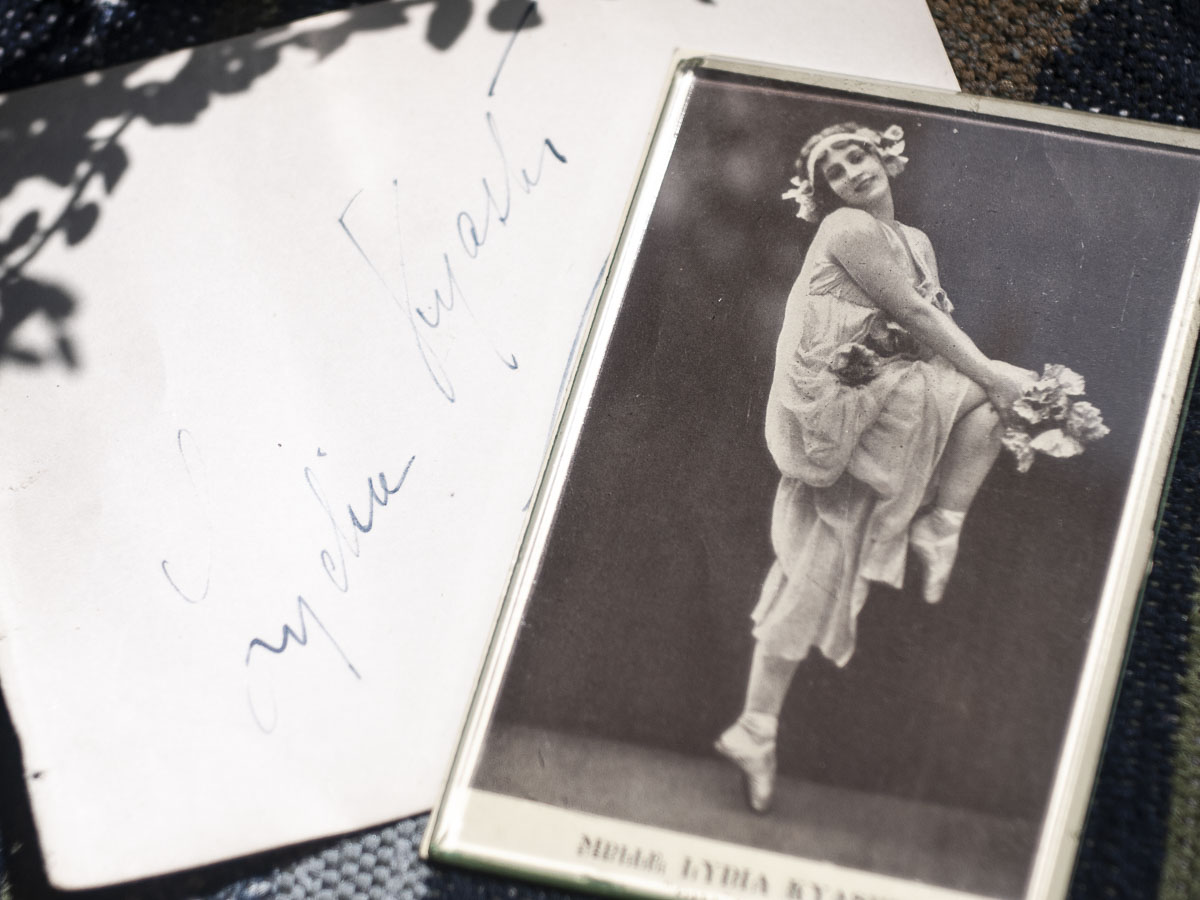 Lydia Kyasht
MELLE. LYDIA KYAS